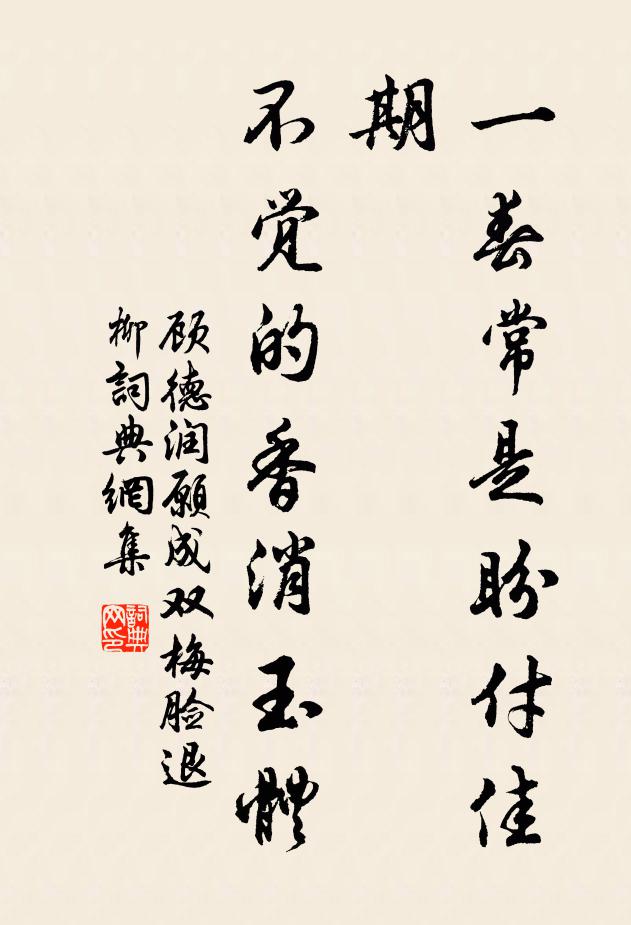 一春常是盼付佳
期
不觉的香消玉體
顾德润愿成双梅脸退
柳詞典網集
詞典网印